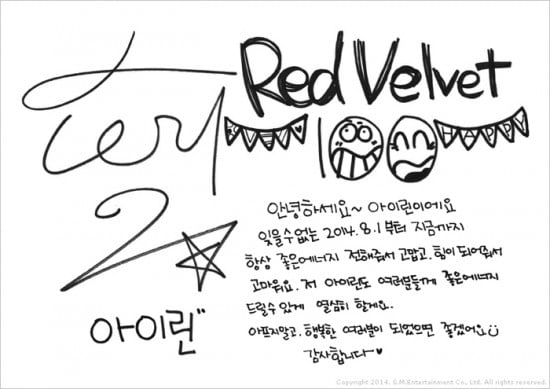 Red Velvet
100
HAPPY
안녕하세요~ 아이린이에요
잊을수없는 2014.8.1 부터 지금까지
항상 좋은에너지 전해줘서 고맙고. 힘이 되어줘서
고마워요. 저 아이린도 여러분들께 좋은에너지
드릴수 있게 열심히 할게요.
아프지말고. 행복한 여러분이 되었으면 좋겠어요
감사합니다♥
아이린"
Copyright 2014. S.M.Entertainment Co., Ltd. All rights reserved.